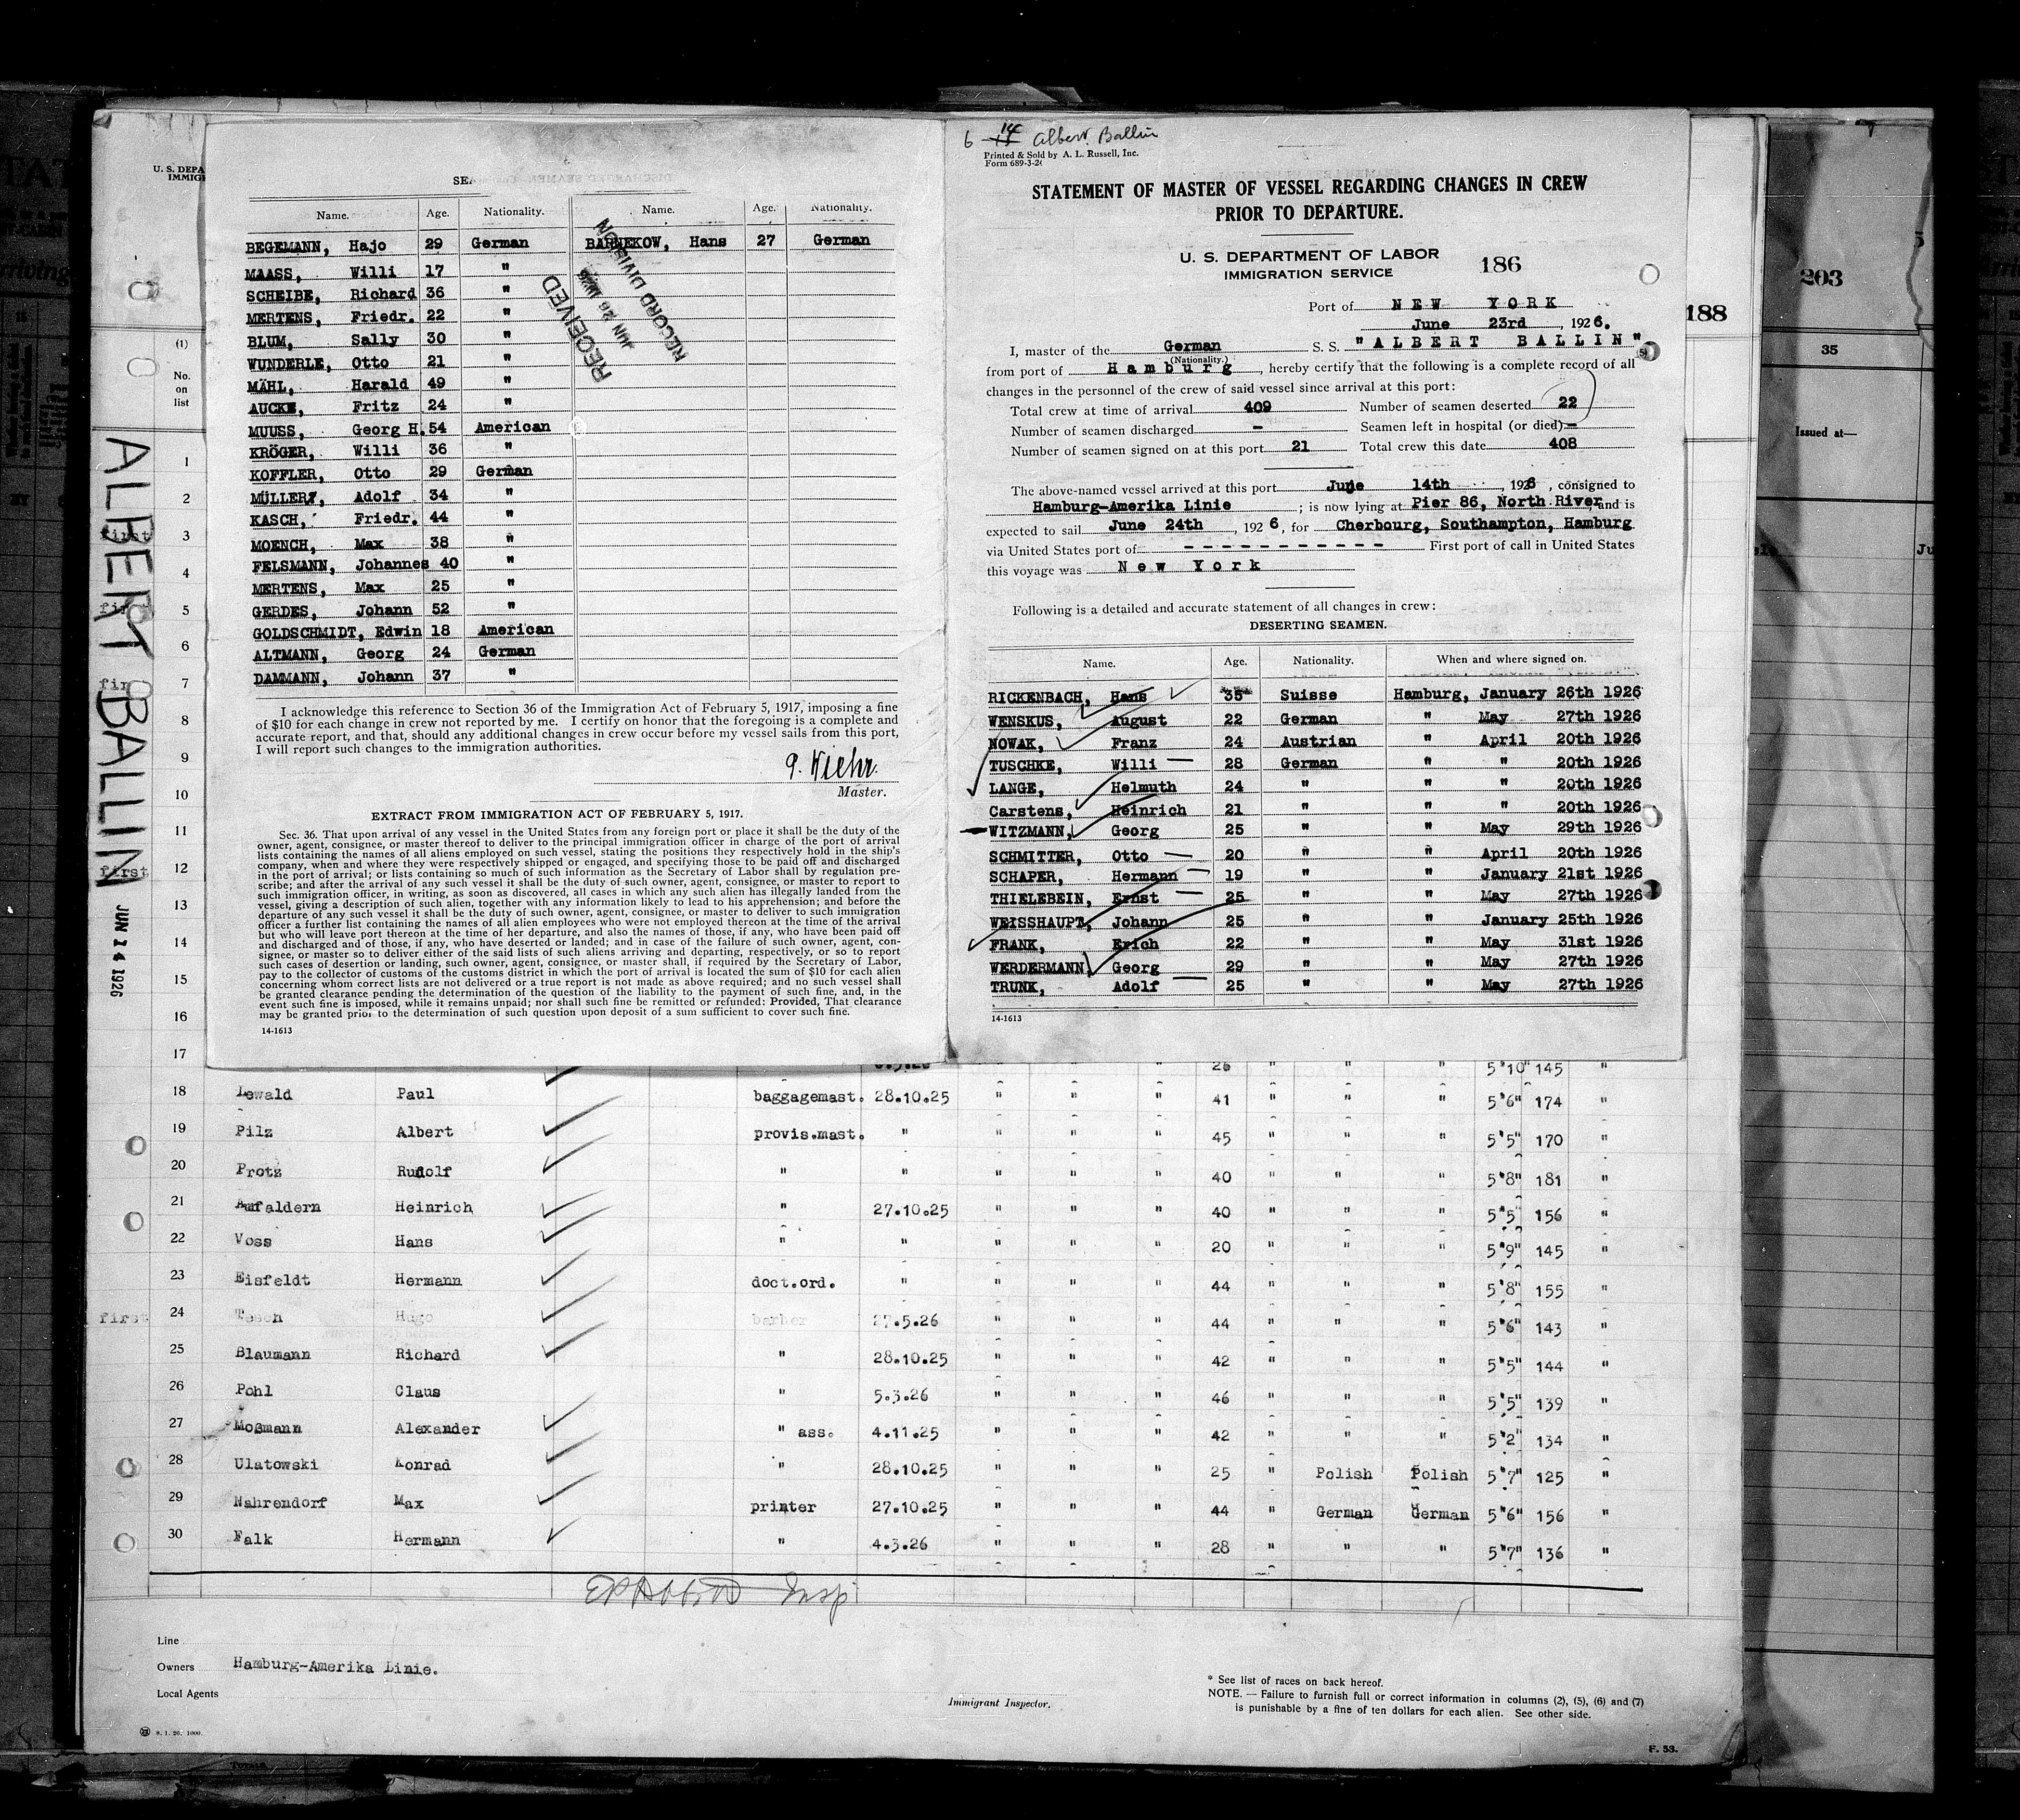 6 - 14 Albert Ballin
Printed & Sold by A. L. Russell, Inc.
Form 689-3-26
STATEMENT OF MASTER OF VESSEL REGARDING CHANGES IN CREW
PRIOR TO DEPARTURE.
U. S. DEPARTMENT OF LABOR
IMMIGRATION SERVICE
186
Port of NEW YORK
June 23rd, 1926.
I, master of the German S. S. "ALBERT BALLIN"
(Nationality.)
from port of Hamburg, hereby certify that the following is a complete record of all
changes in the personnel of the crew of said vessel since arrival at this port:
Total crew at time of arrival 409 Number of seamen deserted 22
Number of seamen discharged - Seamen left in hospital (or died) -
Number of seamen signed on at this port 21 Total crew this date 408
The above-named vessel arrived at this port June 14th, 1926, consigned to
Hamburg-Amerika Linie; is now lying at Pier 86, North River, and is
expected to sail June 24th, 1926, for Cherbourg, Southampton, Hamburg
via United States port of - - - - - - - - - - - First port of call in United States
this voyage was New York
Following is a detailed and accurate statement of all changes in crew:
DESERTING SEAMEN.
Name. Age. Nationality. When and where signed on.
RICKENBACH, Hans 35 Suisse Hamburg, January 26th 1926
WENSKUS, August 22 German " May 27th 1926
NOWAK, Franz 24 Austrian " April 20th 1926
TUSCHKE, Willi 28 German " " 20th 1926
LANGE, Helmuth 24 " " " 20th 1926
Carstens, Heinrich 21 " " " 20th 1926
WITZMANN, Georg 25 " " May 29th 1926
SCHMITTER, Otto 20 " " April 20th 1926
SCHAPER, Hermann 19 " " January 21st 1926
THIELEBEIN, Ernst 25 " " May 27th 1926
WEISSHAUPT, Johann 25 " " January 25th 1926
FRANK, Erich 22 " " May 31st 1926
WERDERMANN Georg 29 " " May 27th 1926
TRUNK, Adolf 25 " " May 27th 1926
14-1613
U. S. DEPA
IMMIG
SEA
Name. Age. Nationality. Name. Age. Nationality.
BEGEMANN, Hajo 29 German BARNEKOW, Hans 27 German
MAASS, Willi 17 "
SCHEIBE, Richard 36 "
MERTENS, Friedr. 22 "
BLUM, Sally 30 "
WUNDERLE, Otto 21 "
MÄHL, Harald 49 "
AUCKE, Fritz 24 "
MUUSS, Georg H. 54 American
KRÖGER, Willi 36 "
KOFFLER, Otto 29 German
MÜLLER, Adolf 34 "
KASCH, Friedr. 44 "
MOENCH, Max 38 "
FELSMANN, Johannes 40 "
MERTENS, Max 25 "
GERDES, Johann 52 "
GOLDSCHMIDT, Edwin 18 American
ALTMANN, Georg 24 German
DAMMANN, Johann 37 "
RECEIVED
JUN 26 1926
RECORD DIVISION
I acknowledge this reference to Section 36 of the Immigration Act of February 5, 1917, imposing a fine
of $10 for each change in crew not reported by me. I certify on honor that the foregoing is a complete and
accurate report, and that, should any additional changes in crew occur before my vessel sails from this port,
I will report such changes to the immigration authorities.
Master.
EXTRACT FROM IMMIGRATION ACT OF FEBRUARY 5, 1917.
Sec. 36. That upon arrival of any vessel in the United States from any foreign port or place it shall be the duty of the
owner, agent, consignee, or master thereof to deliver to the principal immigration officer in charge of the port of arrival
lists containing the names of all aliens employed on such vessel, stating the positions they respectively hold in the ship's
company, when and where they were respectively shipped or engaged, and specifying those to be paid off and discharged
in the port of arrival; or lists containing so much of such information as the Secretary of Labor shall by regulation pre-
scribe; and after the arrival of any such vessel it shall be the duty of such owner, agent, consignee, or master to report to
such immigration officer, in writing, as soon as discovered, all cases in which any such alien has illegally landed from the
vessel, giving a description of such alien, together with any information likely to lead to his apprehension; and before the
departure of any such vessel it shall be the duty of such owner, agent, consignee, or master to deliver to such immigration
officer a further list containing the names of all alien employees who were not employed thereon at the time of the arrival
but who will leave port thereon at the time of her departure, and also the names of those, if any, who have been paid off
and discharged and of those, if any, who have deserted or landed; and in case of the failure of such owner, agent, con-
signee, or master so to deliver either of the said lists of such aliens arriving and departing, respectively, or so to report
such cases of desertion or landing, such owner, agent, consignee, or master shall, if required by the Secretary of Labor,
pay to the collector of customs of the customs district in which the port of arrival is located the sum of $10 for each alien
concerning whom correct lists are not delivered or a true report is not made as above required; and no such vessel shall
be granted clearance pending the determination of the question of the liability to the payment of such fine, and, in the
event such fine is imposed, while it remains unpaid; nor shall such fine be remitted or refunded: Provided, That clearance
may be granted prior to the determination of such question upon deposit of a sum sufficient to cover such fine.
14-1613
ALBERT BALLIN
JUN 14 1926
188
203
35
Issued at—
(1)
No.
on
list
1
2
first 3
4
first 5
6
fir 7
8
9
10
11
first 12
13
14
15
16
17 26 " " " 5'10" 145 "
18 Lewald Paul baggagemast. 28.10.25 " " " 41 " " " 5'6" 174 "
19 Pilz Albert provis.mast. " " " " 45 " " " 5'5" 170 "
20 Protz Rudolf " " " " " 40 " " " 5'8" 181 "
21 Aufaldern Heinrich " 27.10.25 " " " 40 " " " 5'5" 156 "
22 Voss Hans " " " " " 20 " " " 5'9" 145 "
23 Eisfeldt Hermann doct.ord. " " " " 44 " " " 5'8" 155 "
first 24 Tesch Hugo barber 27.5.26 " " " 44 " " " 5'6" 143 "
25 Blaumann Richard " 28.10.25 " " " 42 " " " 5'5" 144 "
26 Pohl Claus " 5.3.26 " " " 46 " " " 5'5" 139 "
27 Moßmann Alexander " ass. 4.11.25 " " " 42 " " " 5'2" 134 "
28 Ulatowski Konrad " 28.10.25 " " " 25 " Polish Polish 5'7" 125 "
29 Nahrendorf Max printer 27.10.25 " " " 44 " German German 5'6" 156 "
30 Falk Hermann " 4.3.26 " " " 28 " " " 5'7" 136 "
Insp
Line
Owners Hamburg-Amerika Linie.
Local Agents
Immigrant Inspector.
* See list of races on back hereof.
NOTE. — Failure to furnish full or correct information in columns (2), (5), (6) and (7)
is punishable by a fine of ten dollars for each alien. See other side.
8. 1. 26. 1000.
F. 53.